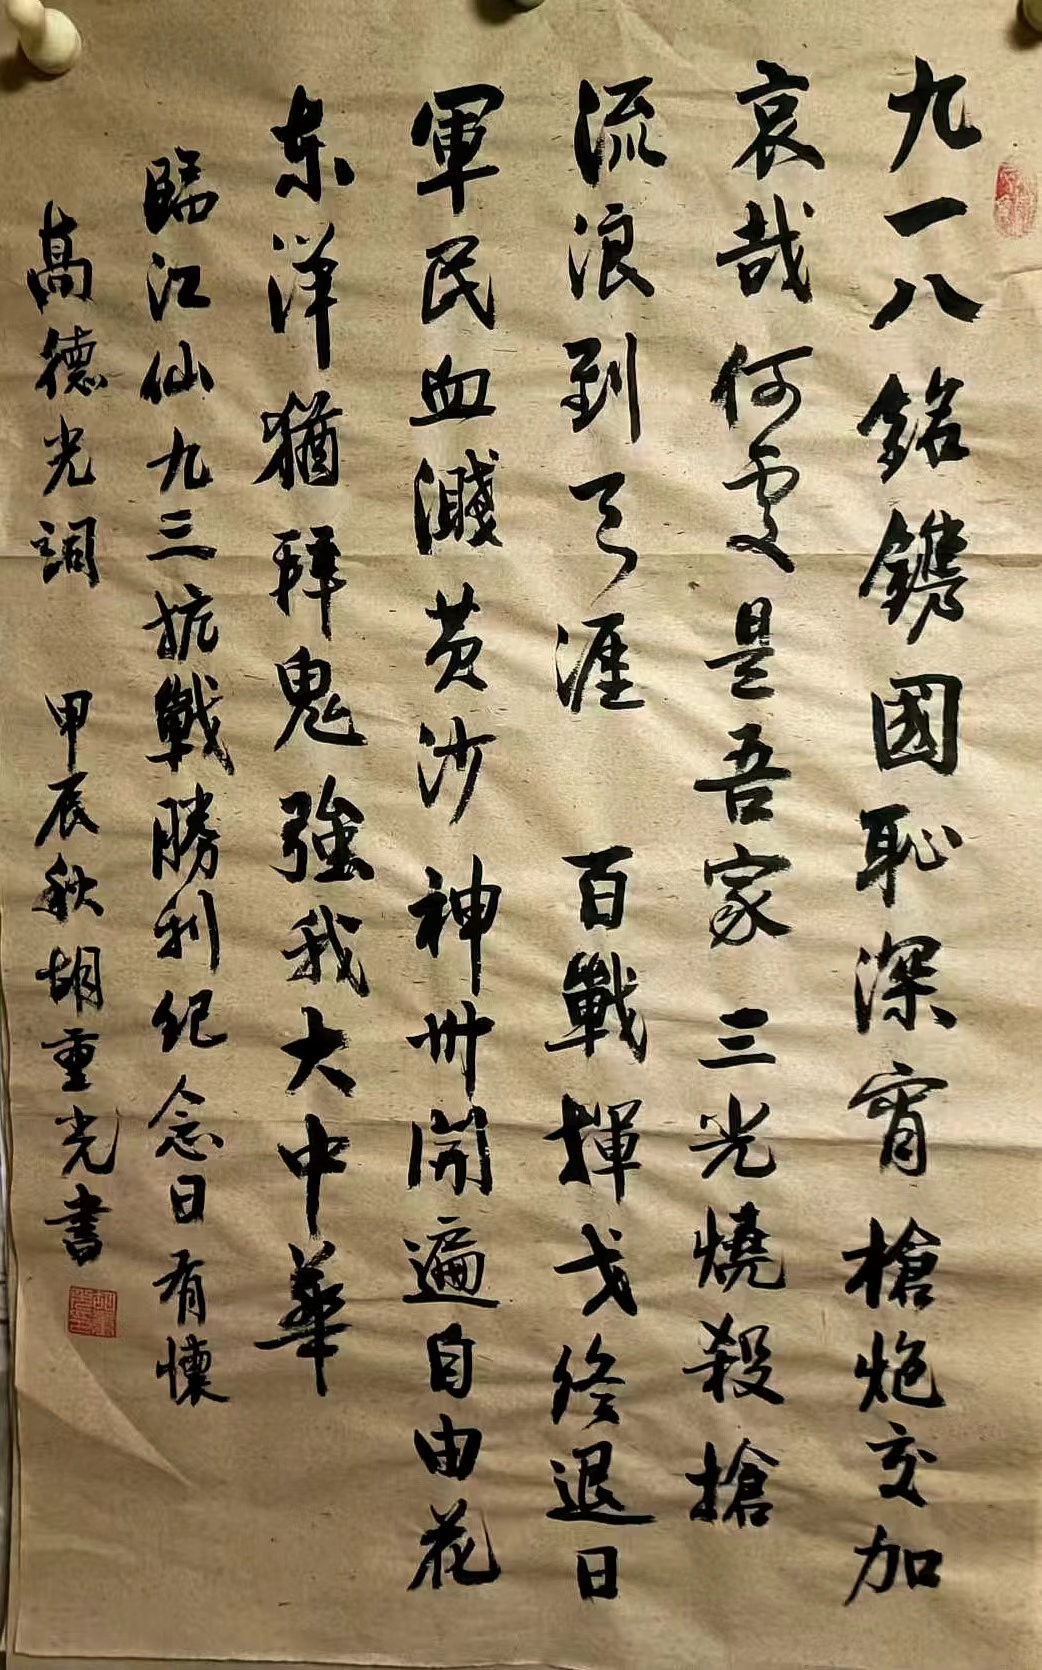 九一八銘鐫國恥深宵槍炮交加
哀哉何處是吾家三光燒殺搶
流浪到天涯 百戰揮戈終退日
軍民血濺黄沙 神州開遍自由花
东洋猶拜鬼強我大中華
臨江仙九三抗戰勝利纪念日有懷
高德光詞 甲辰秋胡重光書